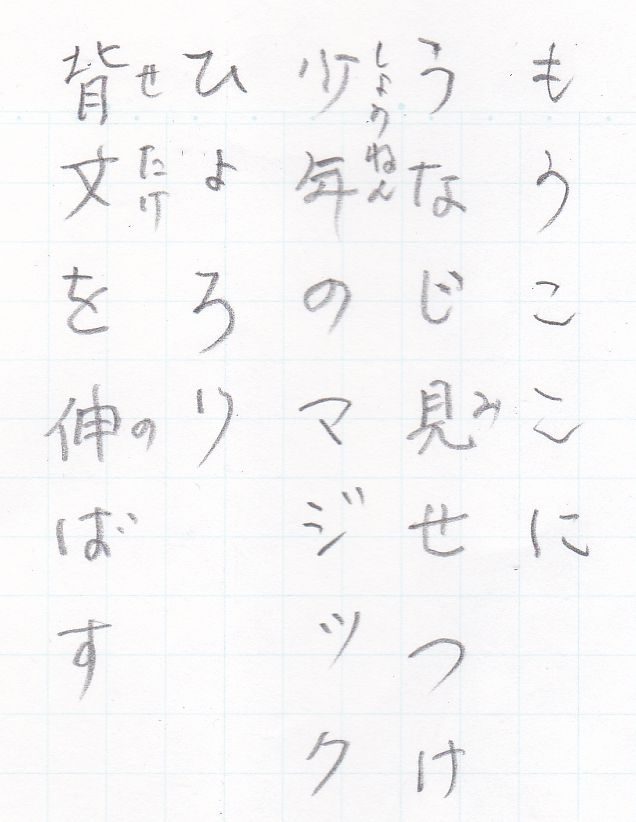 もうここに
うなじ見せつけ
少年のマジック
ひよろり
背丈を伸ばす
み
しょうねん
せたけ
の